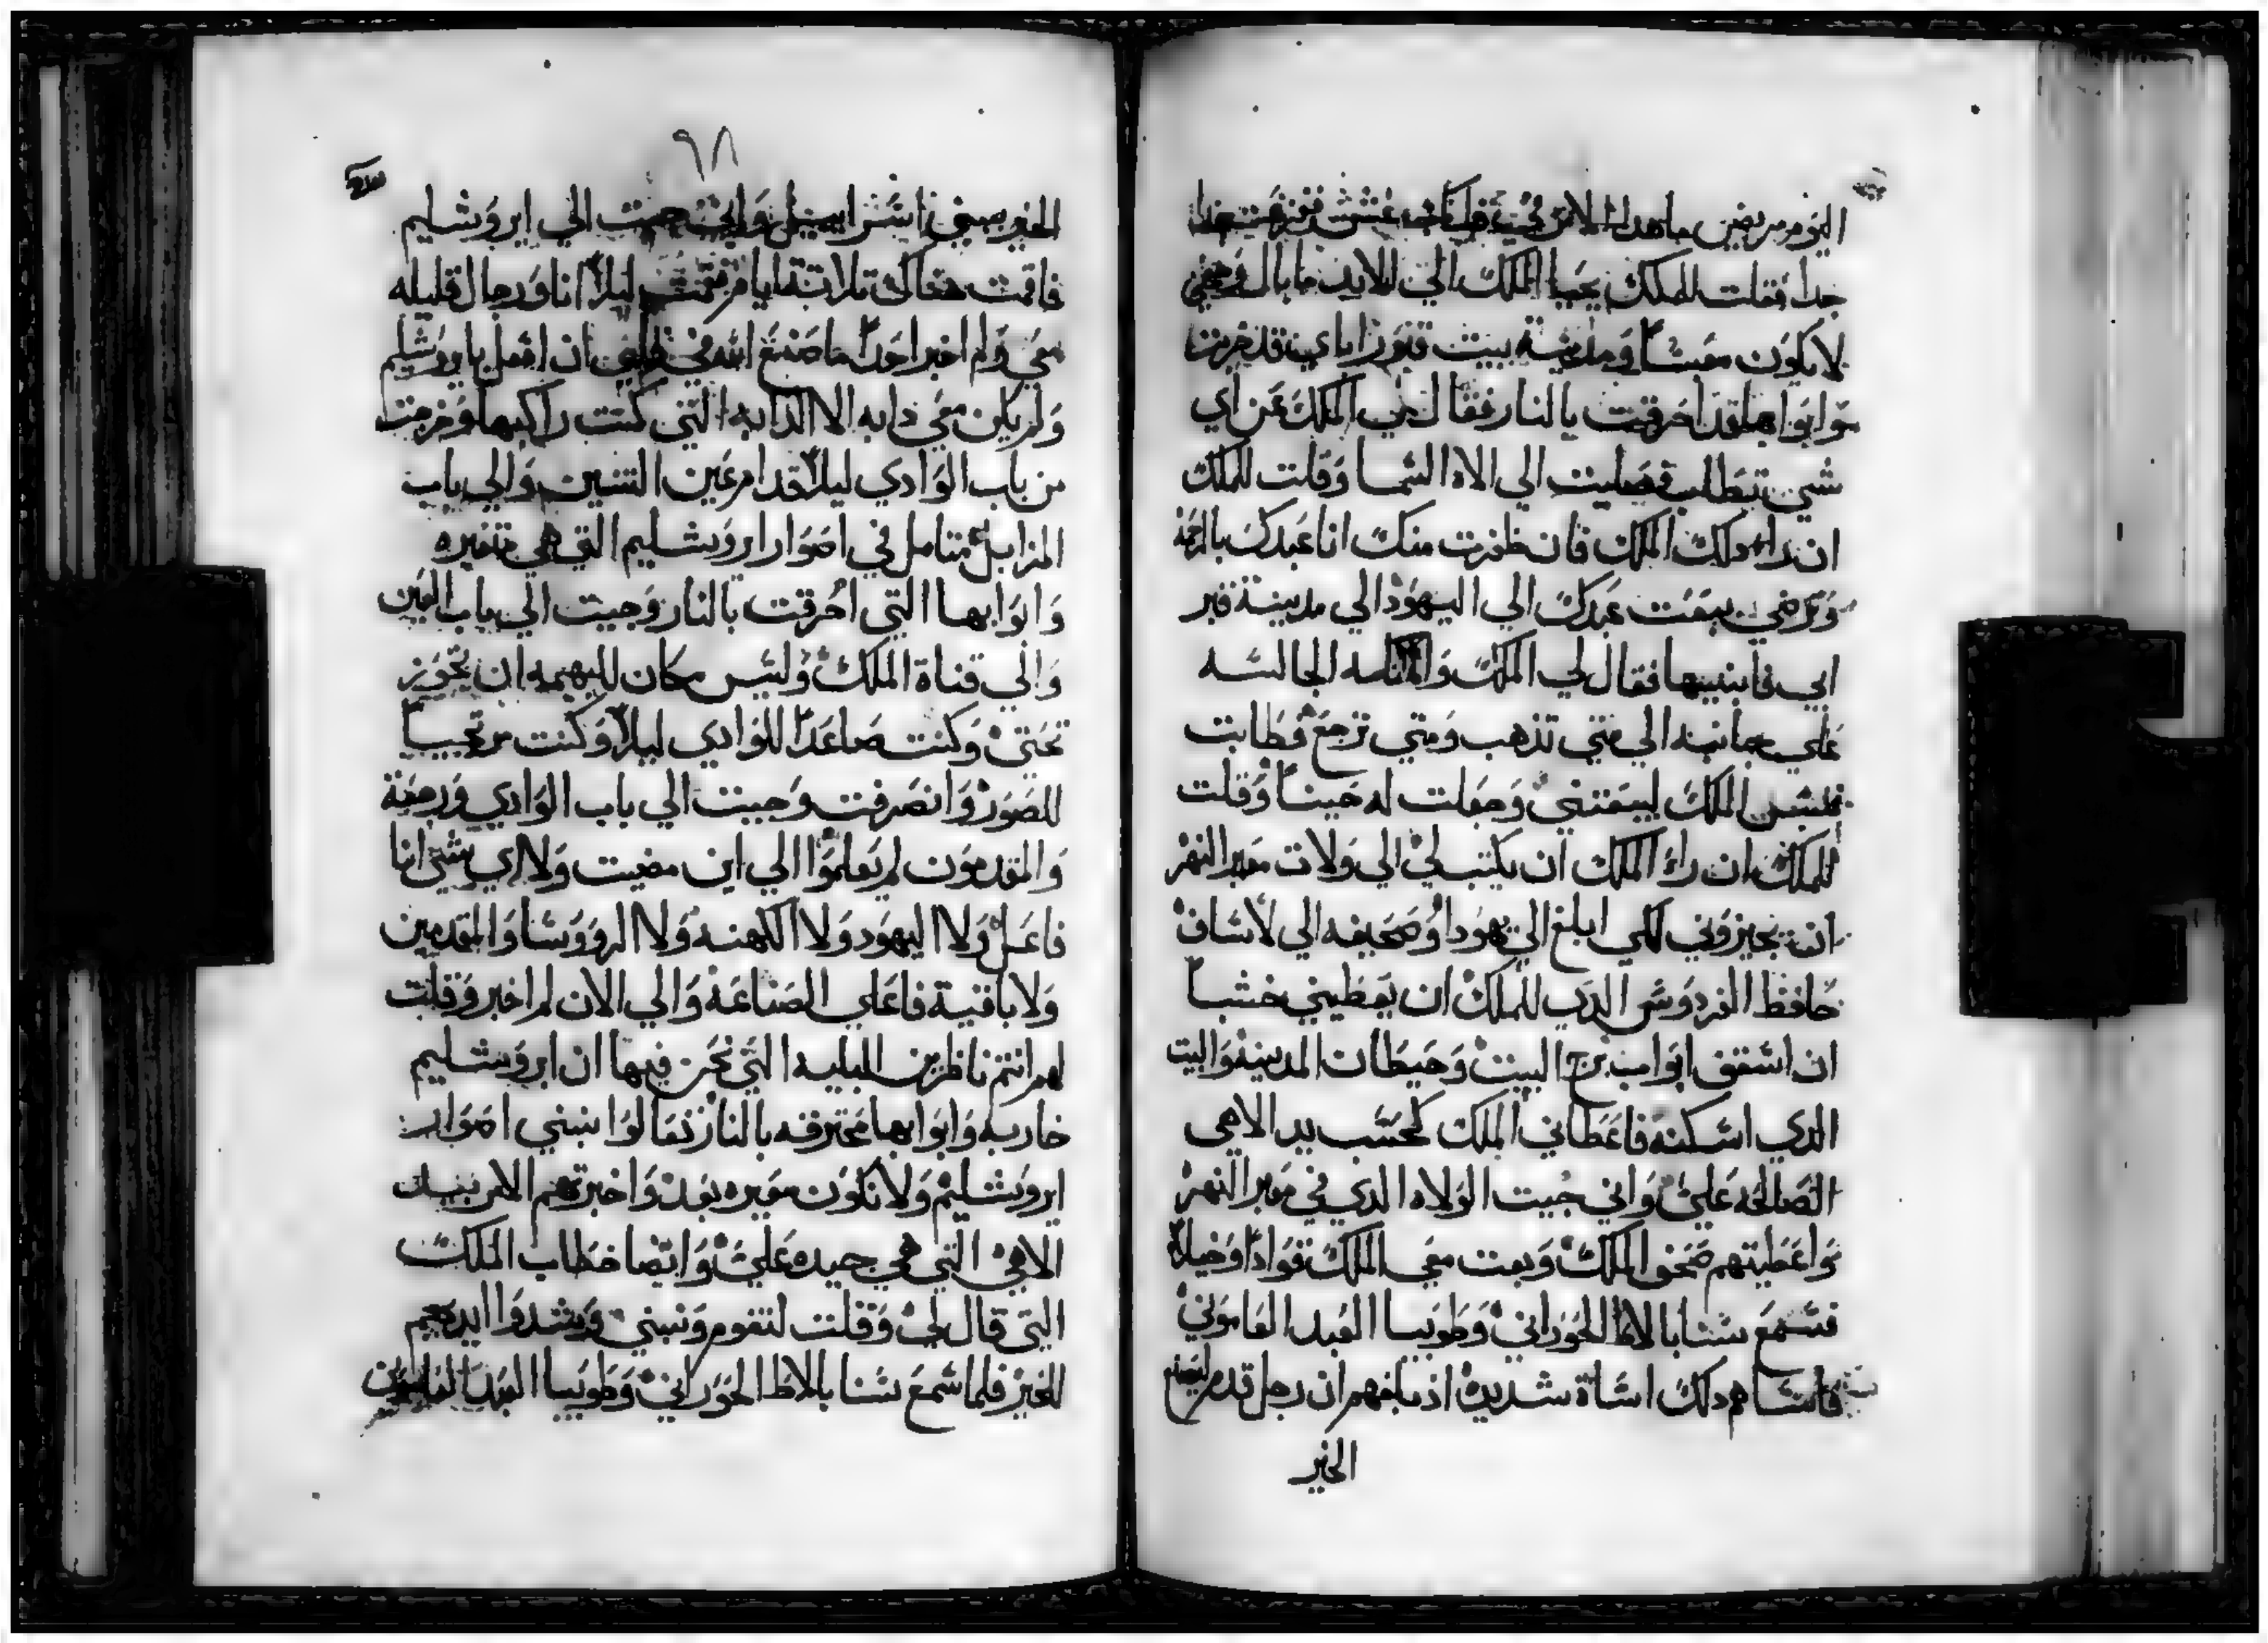 اليوم مريض ما هدا الا من
جدا فقلت للملك يحيا الملك الي الابد ما بال وجهي
لا يكون معبسًا ومدينة بيت قبور اباي قد خربت
وابوابها قد احرقت بالنار فقال لي الملك عن اي
شي تطلب فصليت الي الاه السما وقلت للملك
ان راء دلك الملك فان ظفرت منك انا عبدك بالرحمه
وترضي ببعث عبدك الي اليهودا الي مدينة قبر
ابي فابنيها فقال لي الملك الجالسه
علي جانبه الي متي تذهب ومتي ترجع فطابت
نفس الملك ليبعتني وجعلت له حينًا وقلت
للملك ان راء الملك ان يكتب لي الي ولات معبر النهر
ان يجيزوني لكي ابلغ الي يهودا وصحيفه الي لاساف
حافظ الفردوس الدي للملك ان يعطيني خشبًا
ان اسقف ابواب برج البيت وحيطان المدينه والبيت
الدي اسكنه فاعطاني الملك كحسب يد الاهي
الصالحه علي واني جيت الولاه الدي في معبر النهر
واعطيتهم صحف الملك وبعت معي الملك قوادًا وخيلًا
فسمع سنابالاط الحوراني وطوبيا العبد العاموني
فاسا هم دلك اساة شديده اذ بلغهم ان رجل قدم ليصنع
الخير
٩٨
الخير ببني اسراييل واني جيت الي ايروشليم
فاقمت هناك تلاتة ايام قمت ليلًا انا ورجال قليله
معي ولم اخبر احدًا ما صنع الله في قلبي ان افعل بايروشليم
ولم يكن معي دابه الا الدابه التي كنت راكبها وخرجت
من باب الوادي ليلًا قدام عين التنين والي باب
المزابل متامل في اصوار ايروشليم التي هي متغيره
وابوابها التي احرقت بالنار وجيت الي باب العين
والي قناة الملك وليس مكان للبهيمه ان تجوز
تحتي وكنت صاعدًا للوادي ليلًا وكنت مرتجيبًا
للصور وانصرفت وجيت الي باب الوادي ورجعة
والمقدمون لم يعلموا الي اين مضيت ولا اي شي انا
فاعل ولا اليهود ولا الكهنه ولا الرووسا والمقدمين
ولا باقية فاعلي الصناعه والي الان لم اخبر وقلت
لهم انتم ناظرين البليه التي نحن فيها ان ايروشليم
خاربه وابوابها محترقه بالنار تعالوا نبني اصوار
ايروشليم ولا نكون معيره بعد واخبرتهم الامر بيد
الاهي التي هي جيده علي وايضا خطاب الملك
التي قال لي وقلت لنقوم ونبني وتشدوا ايديهم
للخير فلما سمع سنابالاط الحوراني وطوبيا العبد العاموني